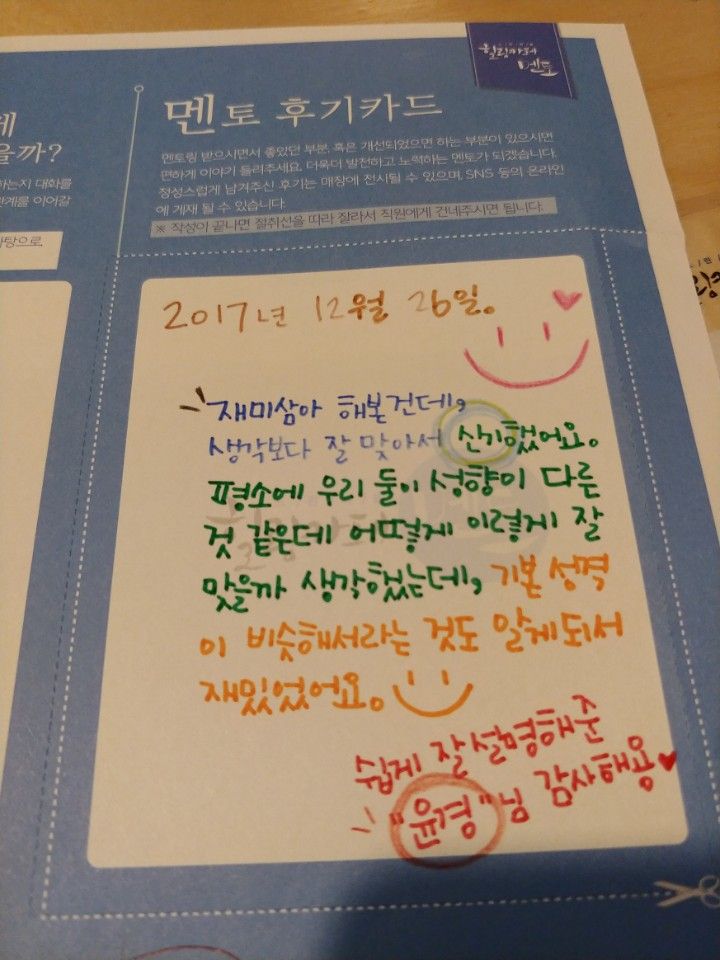 힐링카페
멘토
게
을까?
하는지 대화를
관계를 이어갈
바탕으로
멘토 후기카드
멘토링 받으시면서 좋았던 부분, 혹은 개선되었으면 하는 부분이 있으시면
편하게 이야기 들려주세요. 더욱더 발전하고 노력하는 멘토가 되겠습니다.
정성스럽게 남겨주신 후기는 매장에 전시될 수 있으며, SNS 등의 온라인
에 게재 될 수 있습니다.
※ 작성이 끝나면 절취선을 따라 잘라서 직원에게 건네주시면 됩니다.
2017년 12월 26일.
재미삼아 해본건데,
생각보다 잘 맞아서 신기했어요.
평소에 우리 둘이 성향이 다른
것 같은데 어떻게 이렇게 잘
맞을까 생각했었는데, 기본 성격
이 비슷해서라는 것도 알게되서
재밌었어요.
쉽게 잘 설명해준
"윤경"님 감사해용♥